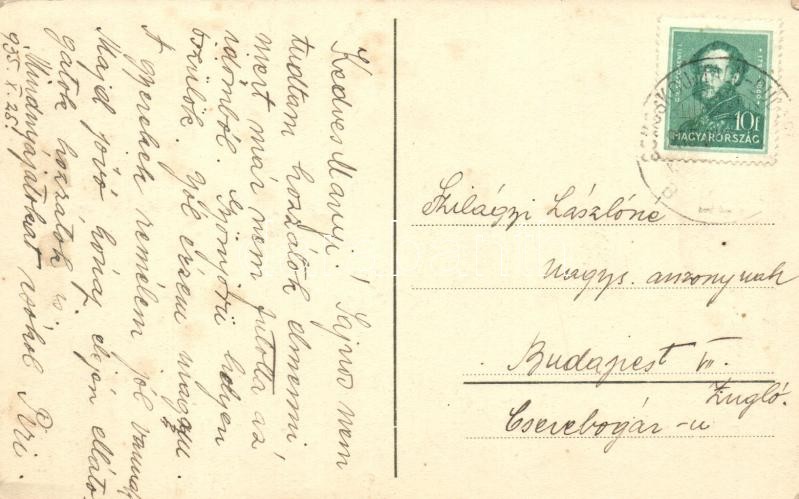 Kedves Manyi! Sajnos nem
tudtam hozzátok elmenni
mert már nem futotta az
időmből. Gyönyörü helyen
bozülök. Jól érzem magam.
A gyerekek remélem jól vannak
Majd jövő hónap elején elláto-
gatok hozzátok is.
Mindnyájatokat csókol Piri.
935. X. 25.
10f
MAGYARORSZÁG
Szilágyi Lászlóné
nagys. asszonynak
Budapest VII.
Zugló.
Cserebogár-u